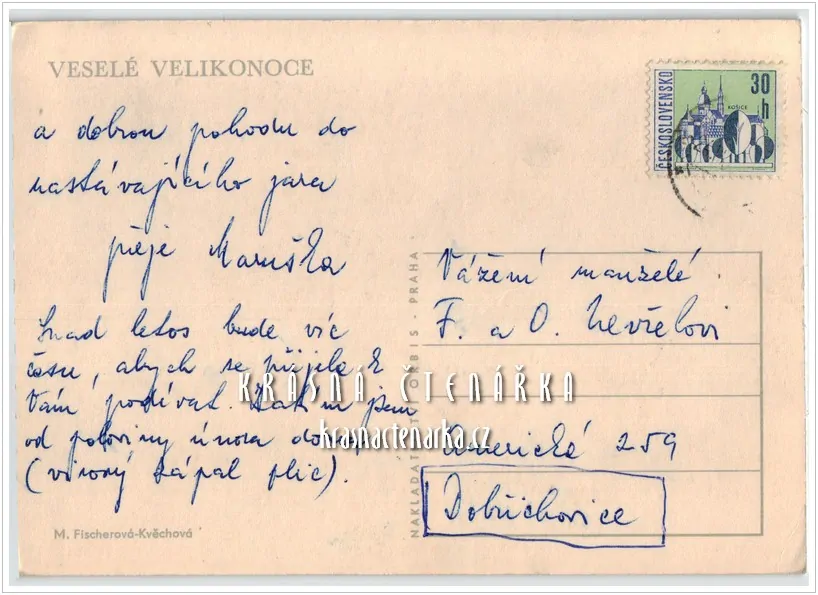 VESELÉ VELIKONOCE
a dobrou pohodu do
nastávajícího jara
přeje Maruška
Snad letos bude víc
času, abych se přijela k
Vám podívat. Zatím jsem
od poloviny února doma
(virový zápal plic).
M. Fischerová-Kvěchová
NAKLADATELSTVÍ ORBIS - PRAHA
ČESKOSLOVENSKO
30 h
KOŠICE
Vážení manželé
F. a O.
Americká 259
Dobřichovice
KRÁSNÁ ČTENÁŘKA
krasnactenarka.cz